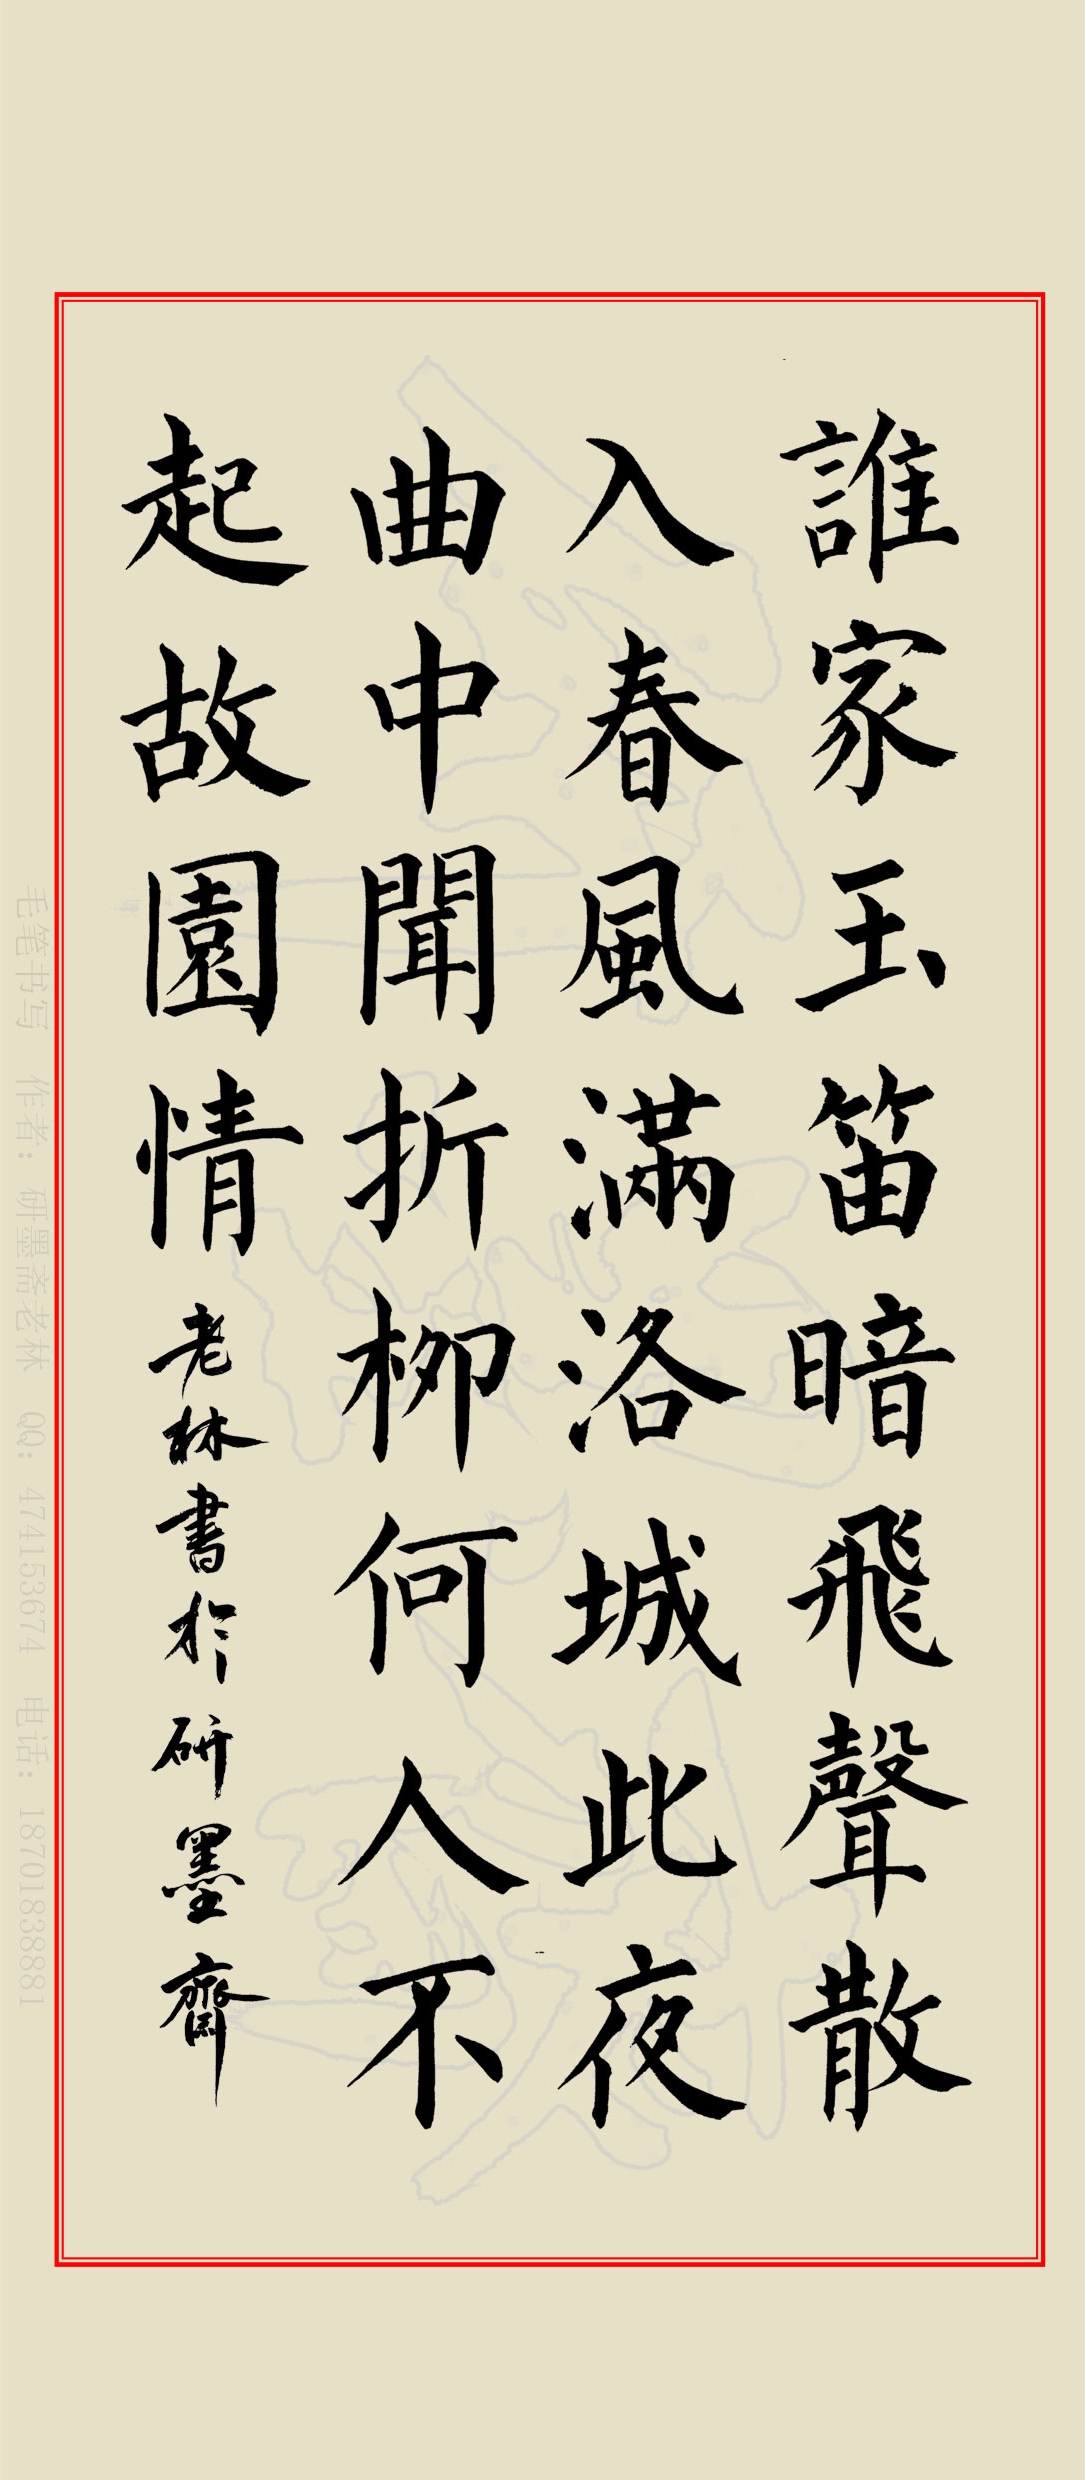 誰家玉笛暗飛聲散
入春風滿洛城此夜
曲中聞折柳何人不
起故園情
老林書於研墨齋
毛笔书写 作者：研墨斋老林 QQ：474153674 电话：18701838881